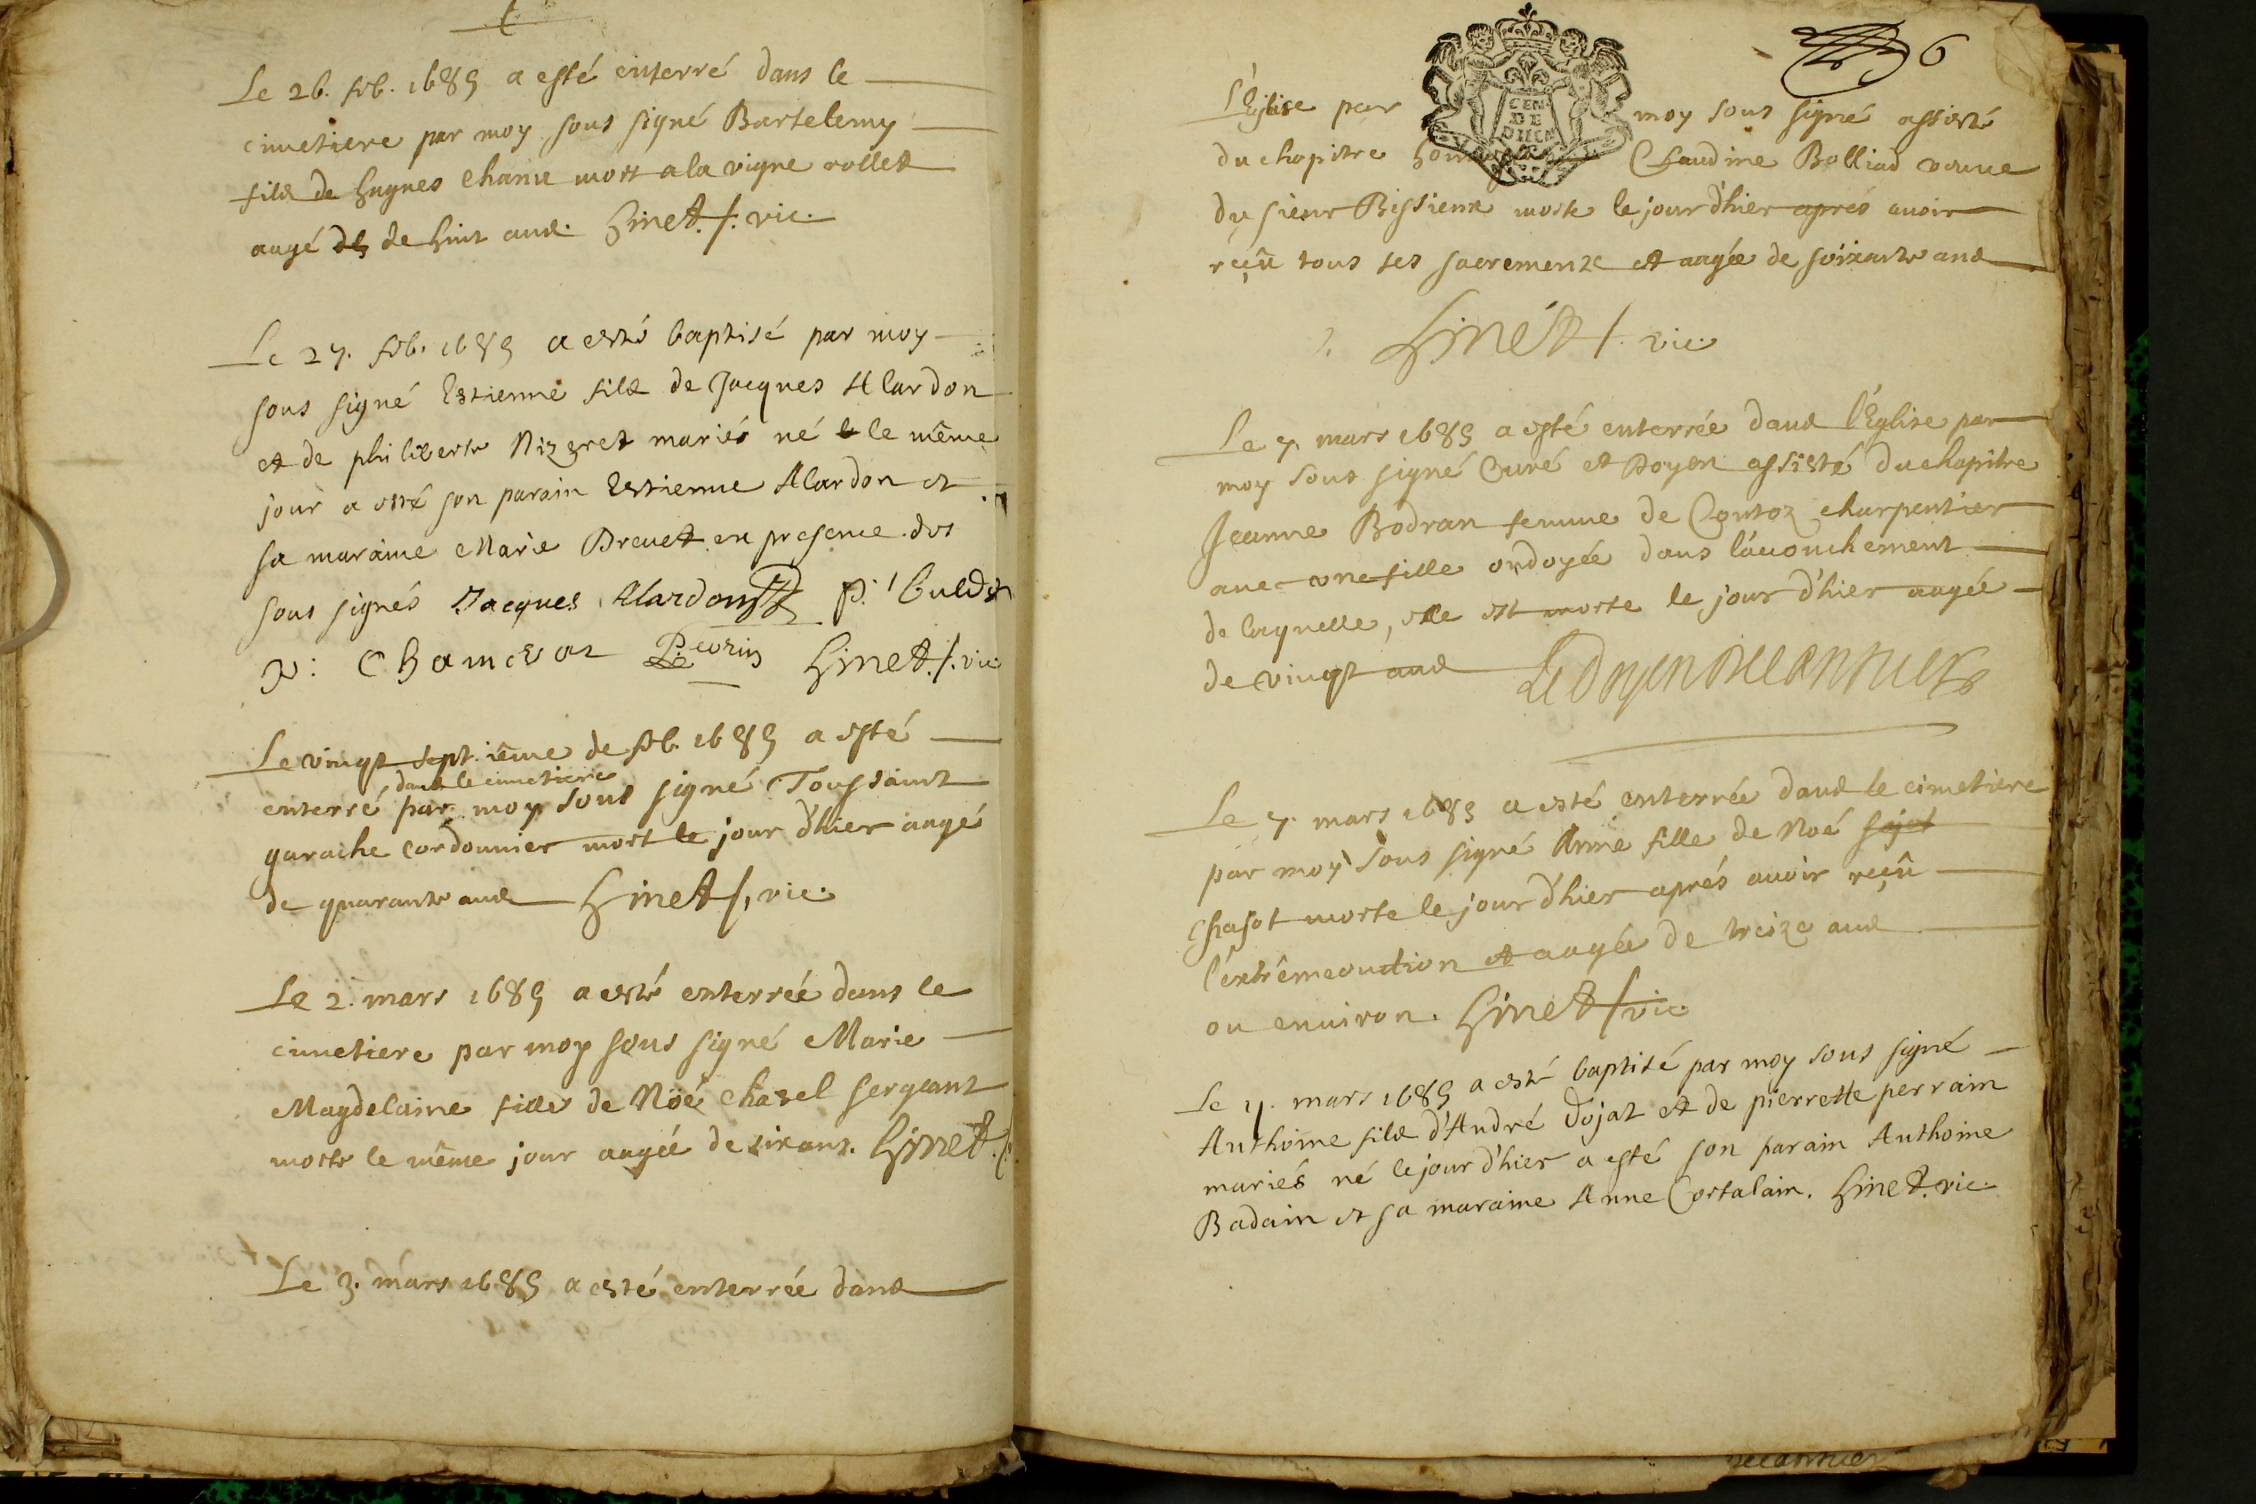 Le 26. feb. 1689 a esté enterré dans le
cimetiere par moy sous signé Bartelemy
fils de hugues Chanu mort a la vigne rollet
aagé de huit ans. hinet. f. vic.
Le 27. feb. 1689 a esté baptisé par moy
sous signé Estienne fils de Jacques Alardon
et de philiberte Nizeret mariés né le même
jour a esté son parain Estienne Alardon et
sa maraine Marie Drevet en presence des
sous signés Jacques Alardon P.
hinet f. vic
Le vingt septiême de feb. 1689 a esté
dans le cimetiere
enterré par moy sous signé Toussaint
garache cordonnier mort le jour d'hier aagé
de quarante ans hinet f. vic.
Le 2. mars 1689 a esté enterrée dans le
cimetiere par moy sous signé Marie
Magdelaine fille de Noé Chasel sergeant
morte le même jour aagée de six ans. hinet. f.
Le 3. mars 1689 a esté enterrée dans
6
L'Eglise par moy sous signé assisté
du chapitre Claudine Bolliad veuve
du sieur Bissieux morte le jour d'hier aprés avoir
reçû tous ses sacrements et aagée de soixante ans
hinét f. vic.
GEN
DE
Le 7. mars 1689 a esté enterrée dans l'Eglise par
moy sous signé Curé et Doyen assisté du chapitre
Jeanne Bodran femme de Contoz charpentier
avec une fille ondoyée dans l'acouchement
de laquelle, elle est morte le jour d'hier aagée
de vingt ans Le Doyen
Le 7. mars 1689 a esté enterrée dans le cimetiere
par moy sous signé Anne fille de Noé
Chasot morte le jour d'hier aprés avoir reçû
l'extrêmeonction et aagée de treize ans
ou environ. hinet f. vic
Le 7. mars 1689 a esté baptisé par moy sous signé
Anthoine fils d'André Dojat et de pierrette perrain
mariés né le jour d'hier a esté son parain Anthoine
Badain et sa maraine Anne Cortalain. hinet. vic.